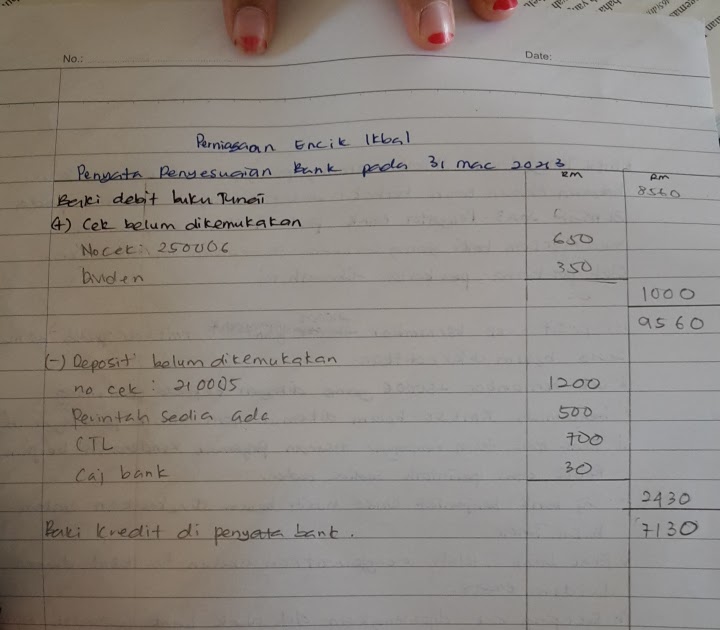 No.: Date:
Perniagaan Encik Ikbal
Penyata Penyesuaian Bank pada 31 mac 2023
RM RM
Baki debit buku Tunai 8560
(+) Cek belum dikemukakan
No cek: 250006 650
Dividen 350
1000
9560
(-) Deposit belum dikemukakan
no. cek : 210005 1200
Perintah sedia ada 500
CTL 700
Caj bank 30
2430
Baki kredit di penyata bank. 7130